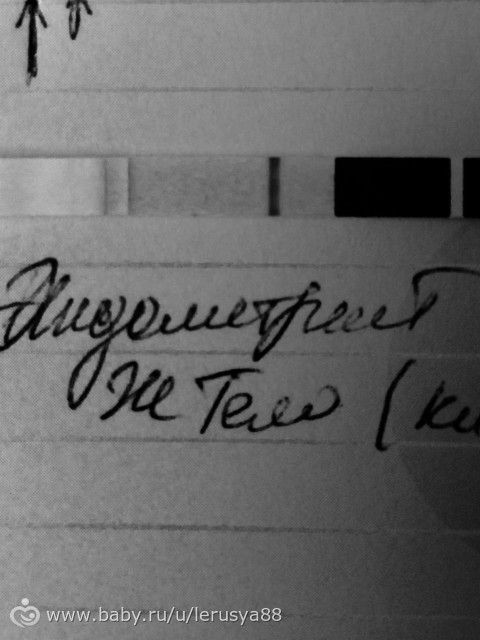 Эндометрий
Ж Тело (ки
www.baby.ru/u/lerusya88